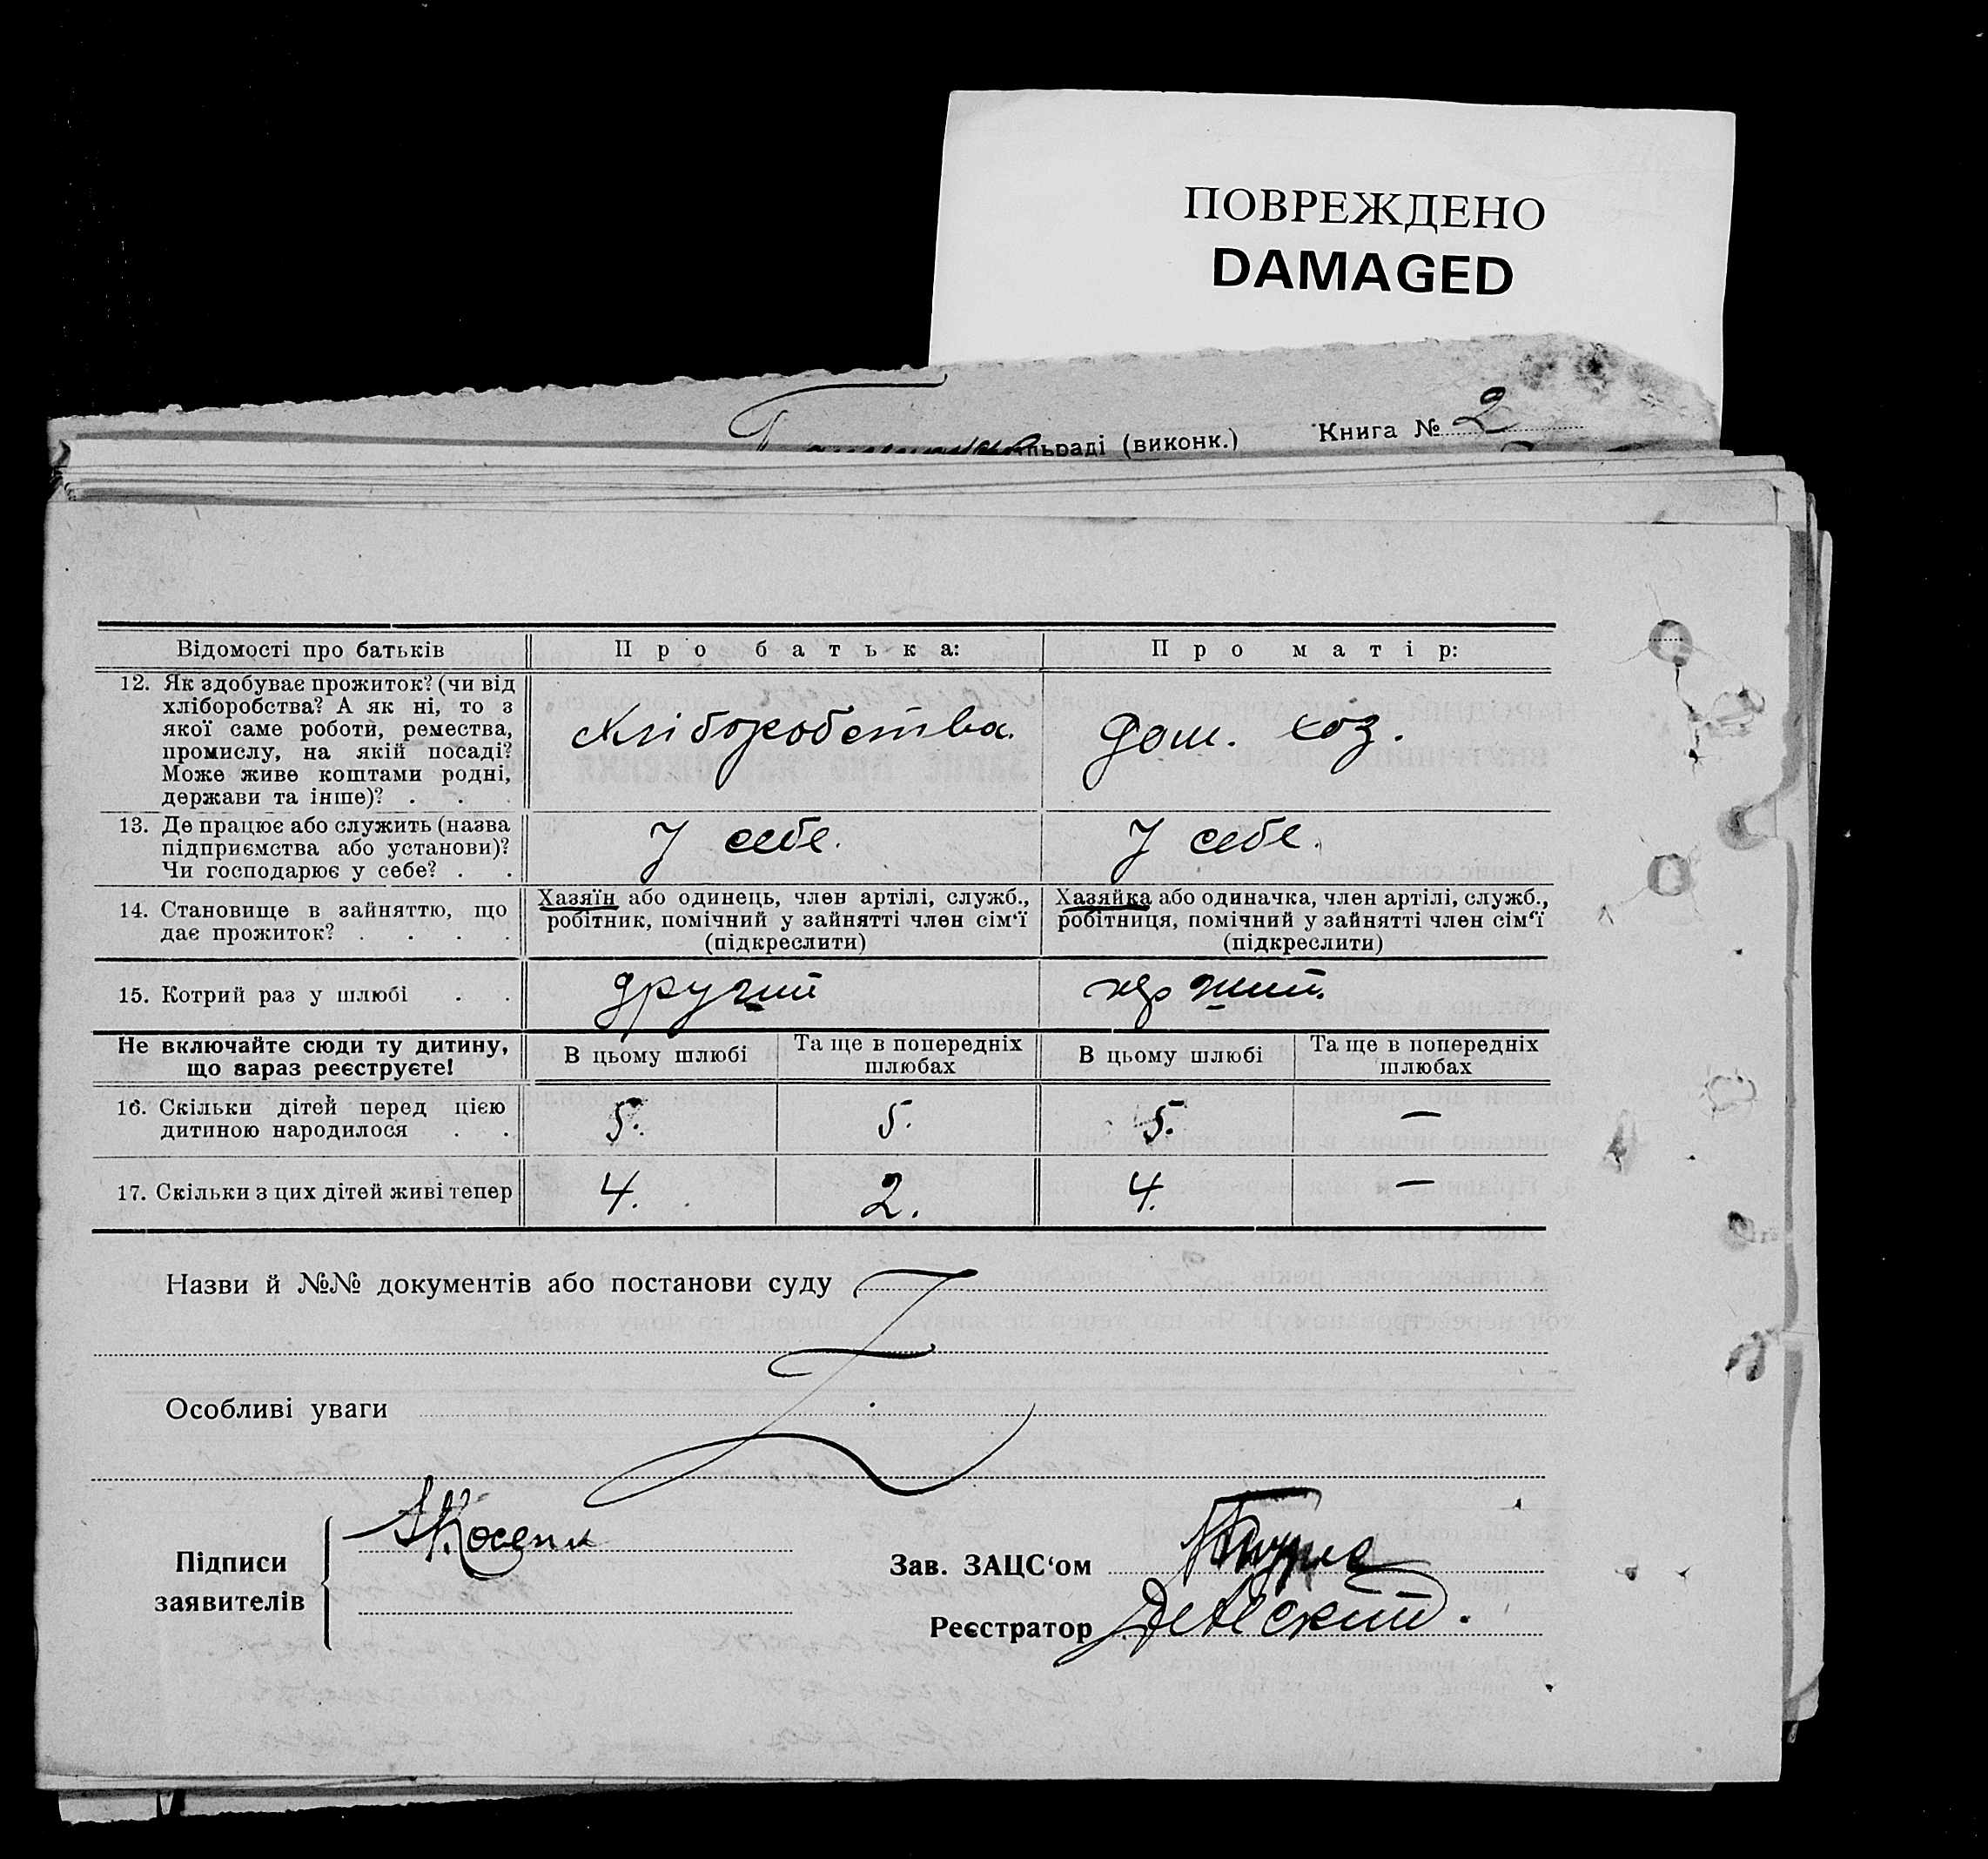 ПОВРЕЖДЕНО
DAMAGED
льраді (виконк.) Книга № 2
Відомості про батьків
Про батька:
Про матір:
12. Як здобуває прожиток? (чи від
хліборобства? А як ні, то з
якої саме роботи, ремества,
промислу, на якій посаді?
Може живе коштами родні,
держави та інше)? . . .
хліборобства.
дом. хоз.
13. Де працює або служить (назва
підприємства або установи)?
Чи господарює у себе? . .
У себе.
У себе.
14. Становище в зайняттю, що
дає прожиток? . . . .
Хазяїн або одинець, член артілі, служб.,
робітник, помічний у зайнятті член сім‘ї
(підкреслити)
Хазяйка або одиначка, член артілі, служб.,
робітниця, помічний у зайнятті член сім‘ї
(підкреслити)
15. Котрий раз у шлюбі . .
другий
Не включайте сюди ту дитину,
що зараз реєструєте!
В цьому шлюбі
Та ще в попередніх
шлюбах
В цьому шлюбі
Та ще в попередніх
шлюбах
16. Скільки дітей перед цією
дитиною народилося . .
5. 5. 5. —
17. Скільки з цих дітей живі тепер
4. 2. 4. —
Назви й №№ документів або постанови суду
Особливі уваги
Підписи
заявителів
Зав. ЗАЦС‘ом
Реєстратор